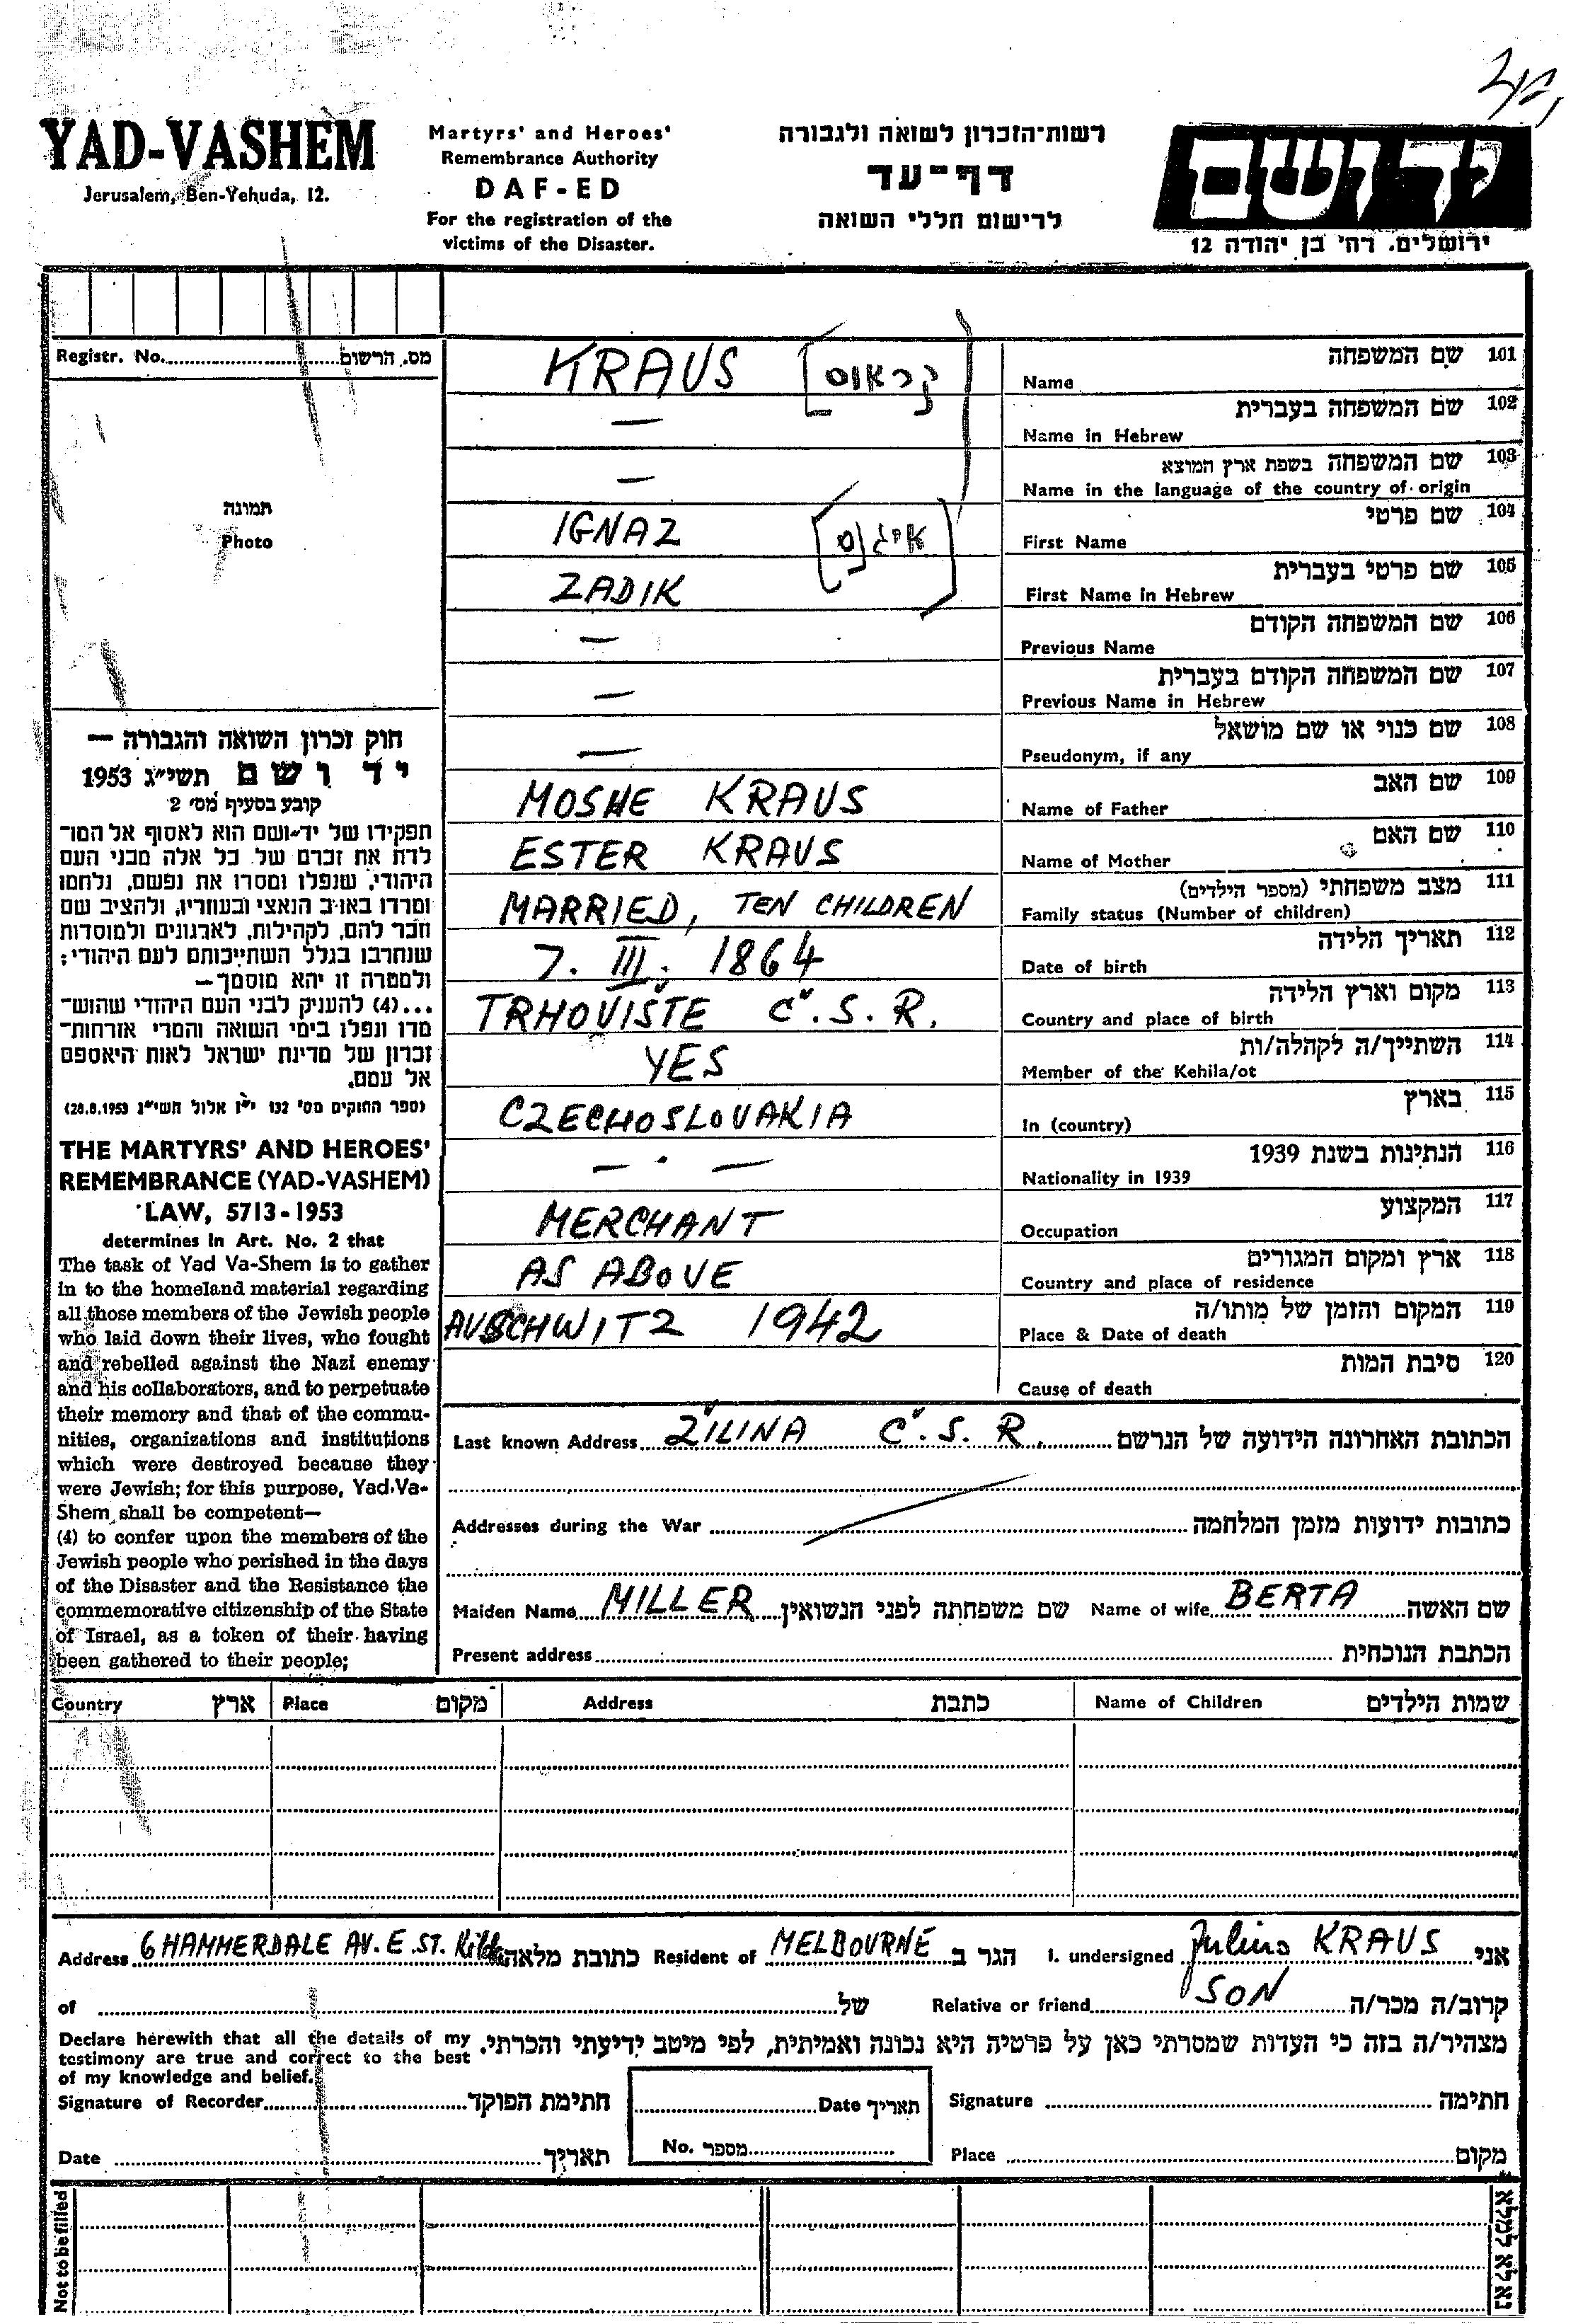 YAD-VASHEM
Jerusalem, Ben-Yehuda, 12.
Martyrs' and Heroes'
Remembrance Authority
DAF-ED
For the registration of the
victims of the Disaster.
רשות־הזכרון לשואה ולגבורה
דף־עד
לרישום חללי השואה
יד ושם
ירושלים. רח' בן יהודה 12
Registr. No. מס. הרשום
תמונה
Photo
חוק זכרון השואה והגבורה —
יד ושם תשי״ג 1953
קובע בסעיף מס׳ 2
תפקידו של יד־ושם הוא לאסוף אל המו־
לדת את זכרם של כל אלה מבני העם
היהודי, שנפלו ומסרו את נפשם, נלחמו
ומרדו באויב הנאצי ובעוזריו, ולהציב שם
וזכר להם, לקהילות, לארגונים ולמוסדות
שנחרבו בגלל השתייכותם לעם היהודי;
ולמטרה זו יהא מוסמך—
...(4) להעניק לבני העם היהודי שהוש־
מדו ונפלו בימי השואה והמרי אזרחות־
זכרון של מדינת ישראל לאות היאספם
אל עמם.
(ספר החוקים מס׳ 132 י״ז אלול תשי״ג 28.8.1953)
THE MARTYRS' AND HEROES'
REMEMBRANCE (YAD-VASHEM)
LAW, 5713-1953
determines in Art. No. 2 that
The task of Yad Va-Shem is to gather
in to the homeland material regarding
all those members of the Jewish people
who laid down their lives, who fought
and rebelled against the Nazi enemy
and his collaborators, and to perpetuate
their memory and that of the commu-
nities, organizations and institutions
which were destroyed because they
were Jewish; for this purpose, Yad-Va-
Shem shall be competent—
(4) to confer upon the members of the
Jewish people who perished in the days
of the Disaster and the Resistance the
commemorative citizenship of the State
of Israel, as a token of their having
been gathered to their people;
KRAUS [קראוס] Name שם המשפחה 101
— Name in Hebrew שם המשפחה בעברית 102
— Name in the language of the country of origin שם המשפחה בשפת ארץ המוצא 103
IGNAZ First Name שם פרטי 104
ZADIK First Name in Hebrew שם פרטי בעברית 105
— Previous Name שם המשפחה הקודם 106
— Previous Name in Hebrew שם המשפחה הקודם בעברית 107
— Pseudonym, if any שם כנוי או שם מושאל 108
MOSHE KRAUS Name of Father שם האב 109
ESTER KRAUS Name of Mother שם האם 110
MARRIED, TEN CHILDREN Family status (Number of children) מצב משפחתי (מספר הילדים) 111
7. III. 1864 Date of birth תאריך הלידה 112
TRHOVIŠTE Č.S.R. Country and place of birth מקום וארץ הלידה 113
YES Member of the Kehila/ot השתייך/ה לקהלה/ות 114
CZECHOSLOVAKIA In (country) בארץ 115
— . — Nationality in 1939 הנתינות בשנת 1939 116
MERCHANT Occupation המקצוע 117
AS ABOVE Country and place of residence ארץ ומקום המגורים 118
AUSCHWITZ 1942 Place & Date of death המקום והזמן של מותו/ה 119
Cause of death סיבת המות 120
Last known Address ŽILINA Č.S.R. הכתובת האחרונה הידועה של הנרשם
Addresses during the War כתובות ידועות מזמן המלחמה
Maiden Name MILLER שם משפחתה לפני הנשואין Name of wife BERTA שם האשה
Present address הכתבת הנוכחית
Country ארץ Place מקום Address כתבת Name of Children שמות הילדים
Address 6 HAMMERDALE AV. E. ST. Kilda כתובת מלאה Resident of MELBOURNE הגר ב I. undersigned Julius KRAUS אני
of של Relative or friend SON קרוב/ה מכר/ה
Declare herewith that all the details of my
testimony are true and correct to the best
of my knowledge and belief.
מצהיר/ה בזה כי העדות שמסרתי כאן על פרטיה היא נכונה ואמיתית, לפי מיטב ידיעתי והכרתי.
Signature of Recorder חתימת הפוקד Date תאריך Signature חתימה
Date תאריך No. מספר Place מקום
Not to be filled
נא לא למלא